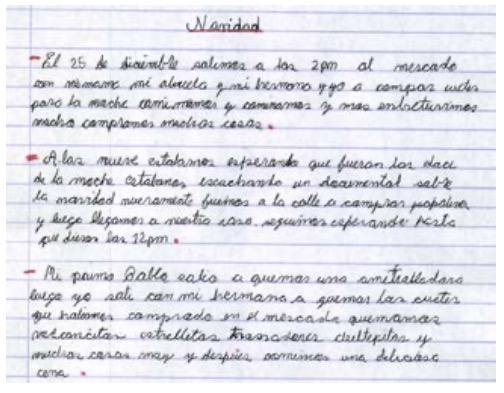 Navidad
- El 25 de diciembre salimos a las 2pm al mercado
con mi mama mi abuela y mi hermano y yo a compar cuetes
para la noche caminamos y caminamos y mas entretuvimos
mucho compramos muchas cosas.
- A las nueve estabamos esperando que fueran las doce
de la noche estabanos escuchando un documental sobre
la navidad nuevamente fuimos a la calle a comprar
y luego llegamos a nuestra casa seguimos esperando hasta
que dieran las 12pm.
- Mi primo Pablo salio a quemar una ametralladora
luego yo sali con mi hermano a quemar los cuetes
que habiamos comprado en el mercado quemamos
volcancitos estrellitas tronadores y
muchas cosas mas y despues comimos una deliciosa
cena.